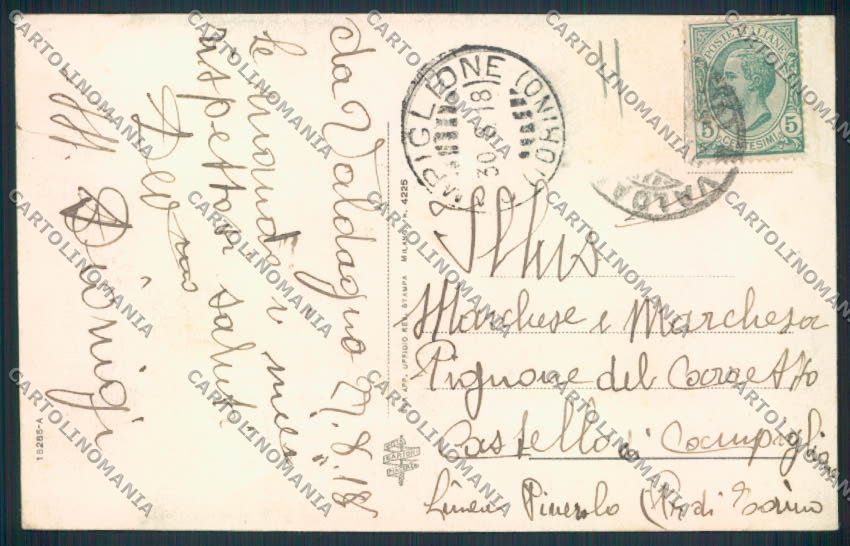 da Valdagno 27.8.18
Le mando i miei
rispettosi saluti
Dev mo
Dionigi
18265-A
APP. UFFICIO REV. STAMPA MILANO N. 4225
CAMPIGLIONE (TORINO)
30 8 18
POSTE ITALIANE
5 5
CENTESIMI
VALDA
Illmi
Marchese e Marchesa
Pignone del Carretto
Castello di Campiglione
Linea Pinerolo (Prov di Torino
CARTOLINOMANIA